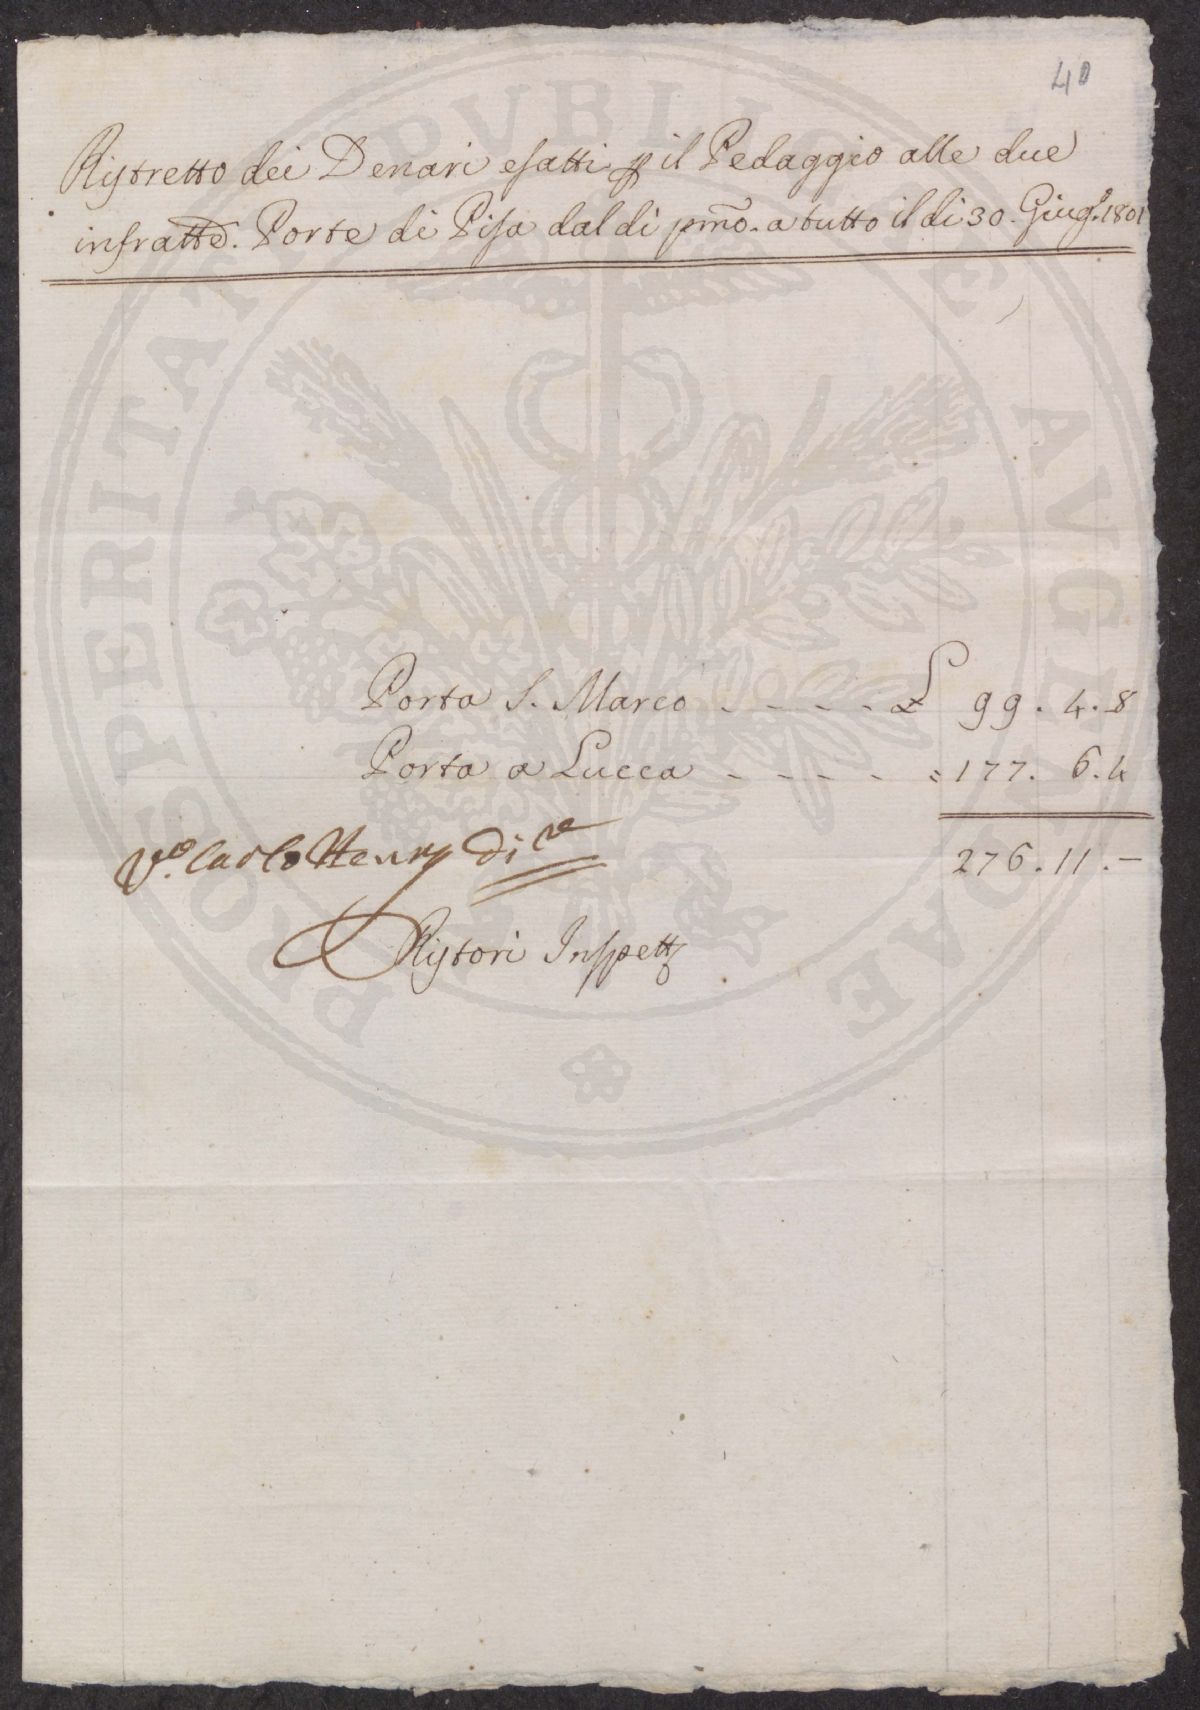 40
Ristretto dei Denari esatti p il Pedaggio alle due
infratte. Porte di Pisa dal di pmo. a tutto il di 30. Giug.o 1801
Porta S. Marco - - - - - £ 99. 4. 8
Porta a Lucca - - - - - = 177. 6. 4
276. 11. —
Vo. Carlo Henry Di re
Ristori Inspett
PROSPERITATI PVBLICAE AVGENDAE